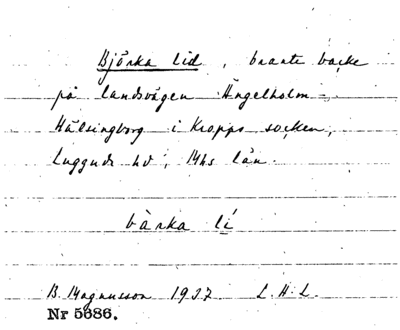 Björka lid, brante backe
på landsvägen Ängelholm -
Hälsingborg i Kropps socken,
Luggude hd, Mhs län.
bàrka lí
B. Magnusson 1937 L.H.L.
Nr 5686.